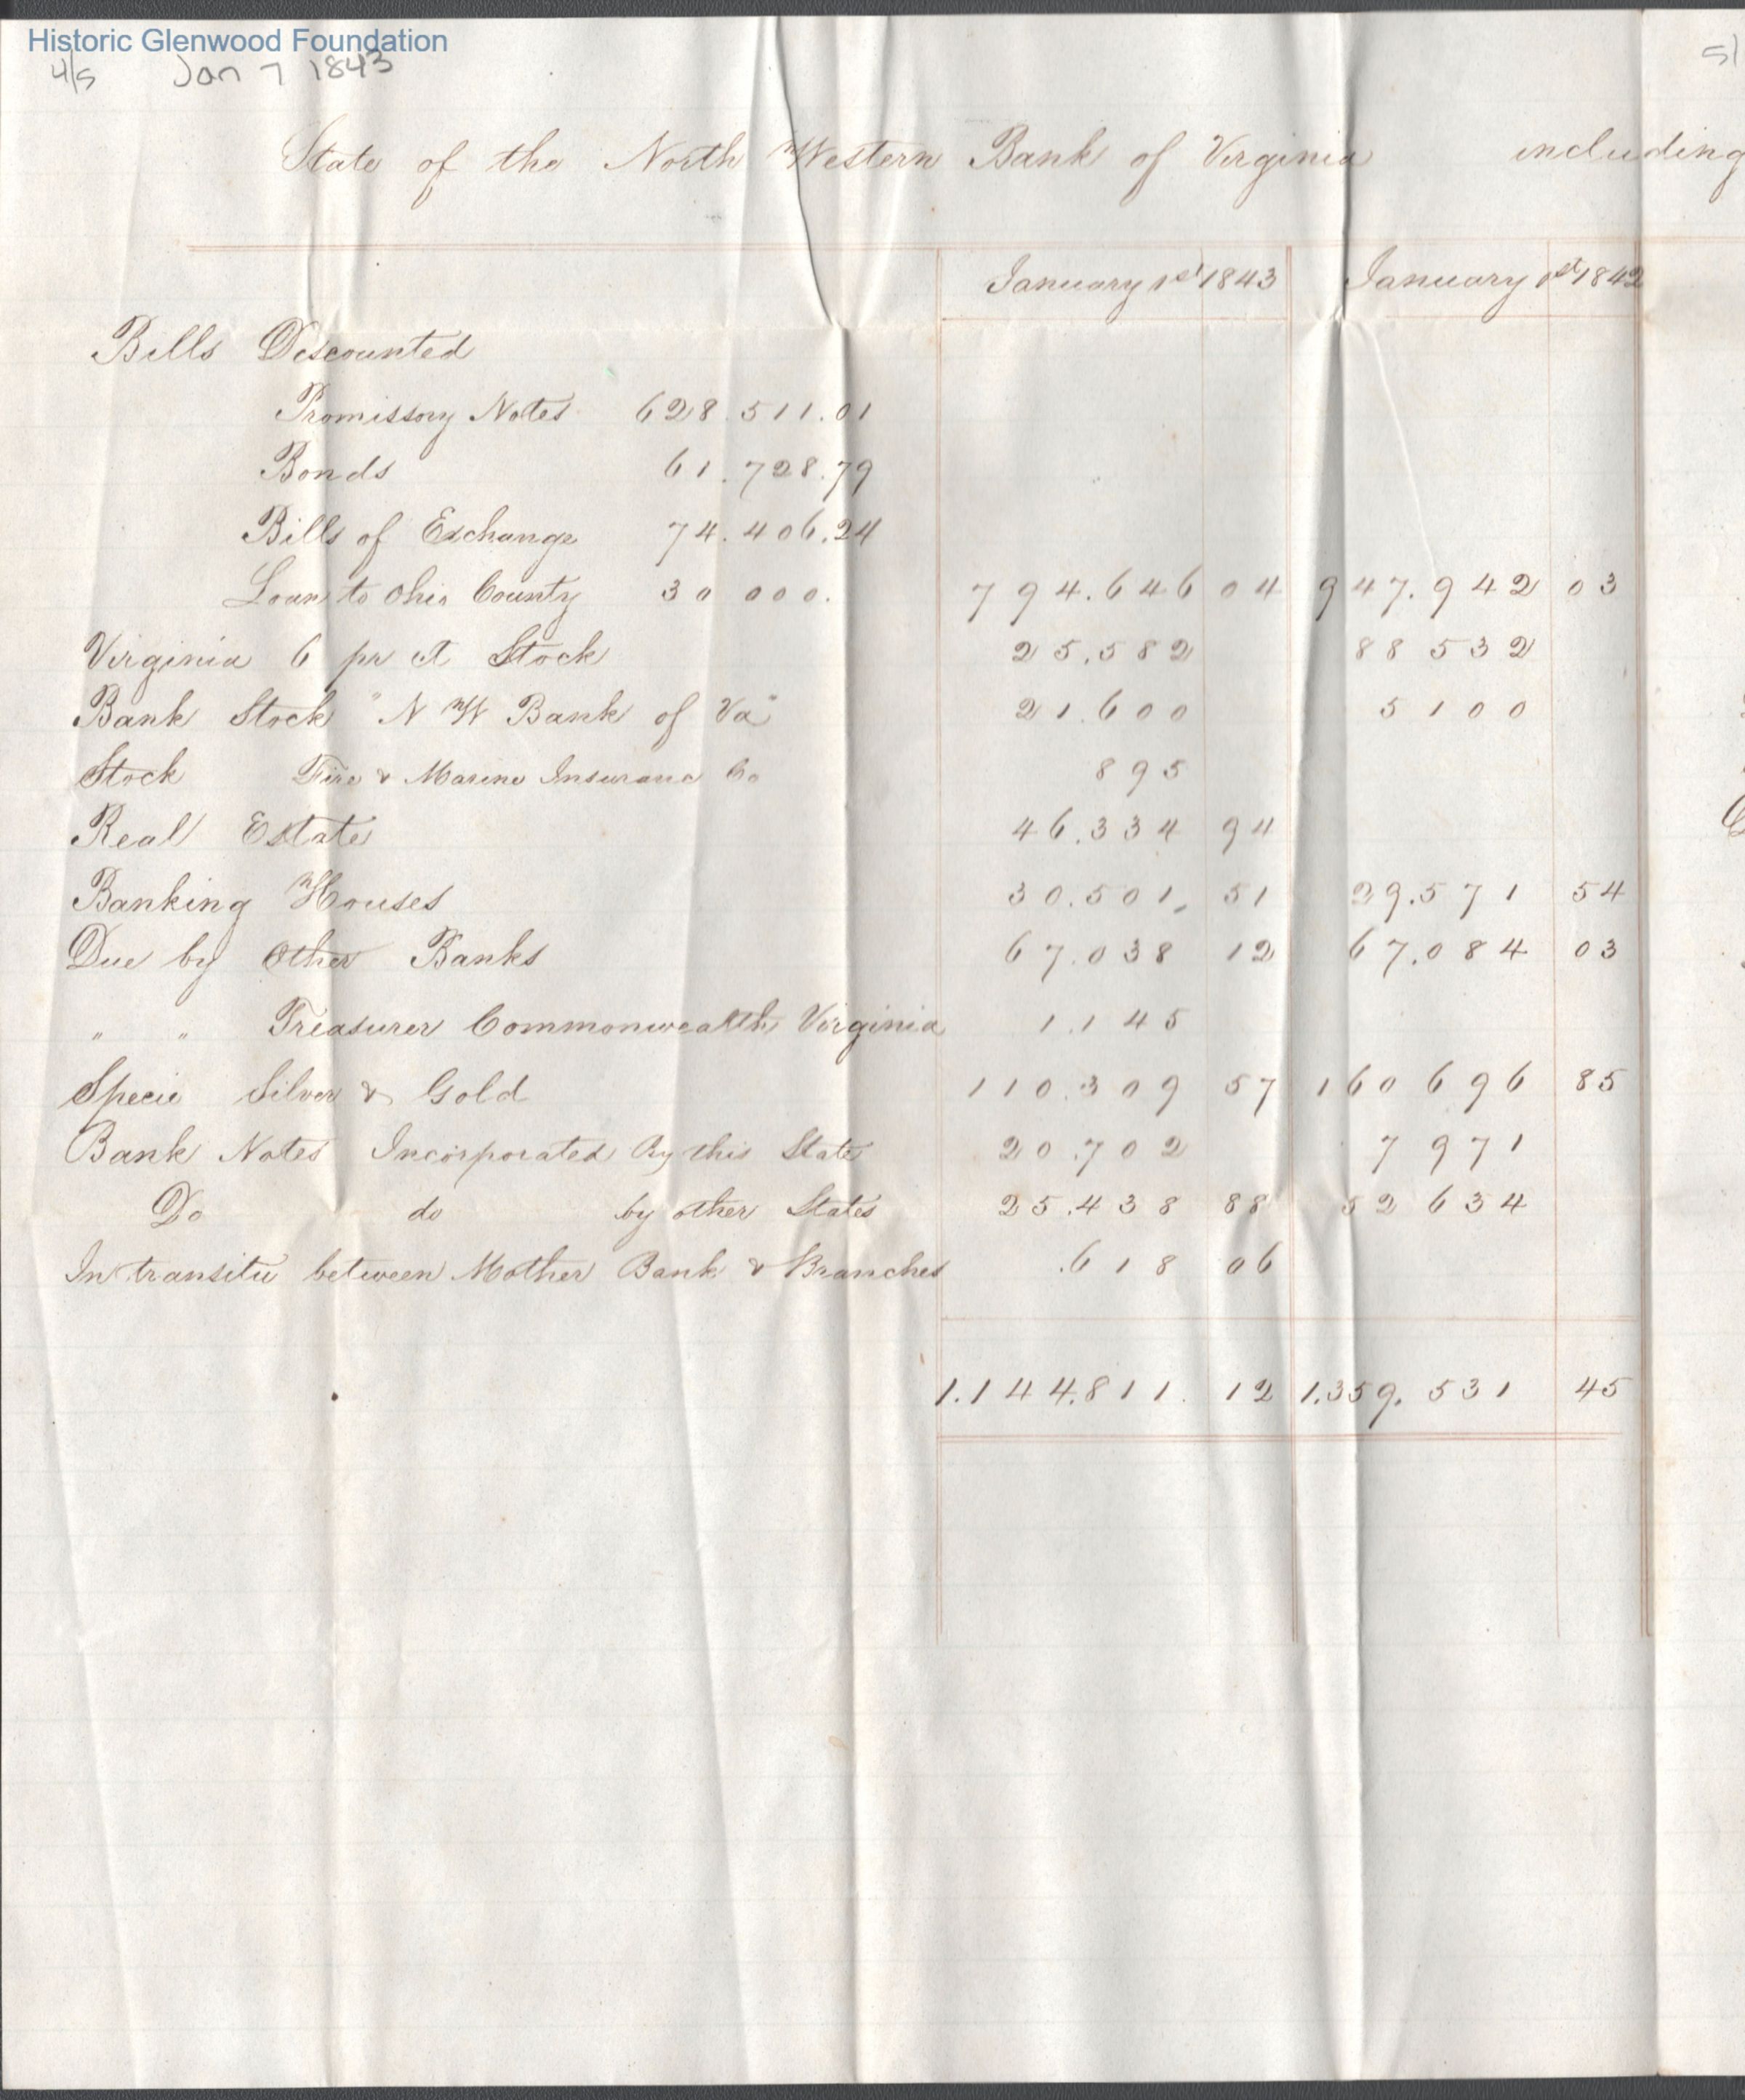 Historic Glenwood Foundation
4/5 Jan 7 1843
State of the North Western Bank of Virginia including
January 1st 1843 January 1st 1842
Bills Discounted
Promissory Notes 628.511.01
Bonds 61.728.79
Bills of Exchange 74.406.24
Loan to Ohio County 30 000. 794.646 04 947.942 03
Virginia 6 pr ct Stock 25.582 88 532
Bank Stock "N W Bank of Va" 21.600 5100
Stock Fire & Marine Insurance Co 895
Real Estate 46.334 94
Banking Houses 30.501 51 29.571 54
Due by Other Banks 67.038 12 67.084 03
" " Treasurer Commonwealth Virginia 1.145
Specie Silver & Gold 110.309 57 160 696 85
Bank Notes Incorporated By this State 20.702 7 971
Do do by other States 25.438 88 52 634
In transitu between Mother Bank & Branches .618 06
1.144.811. 12 1.359.531 45